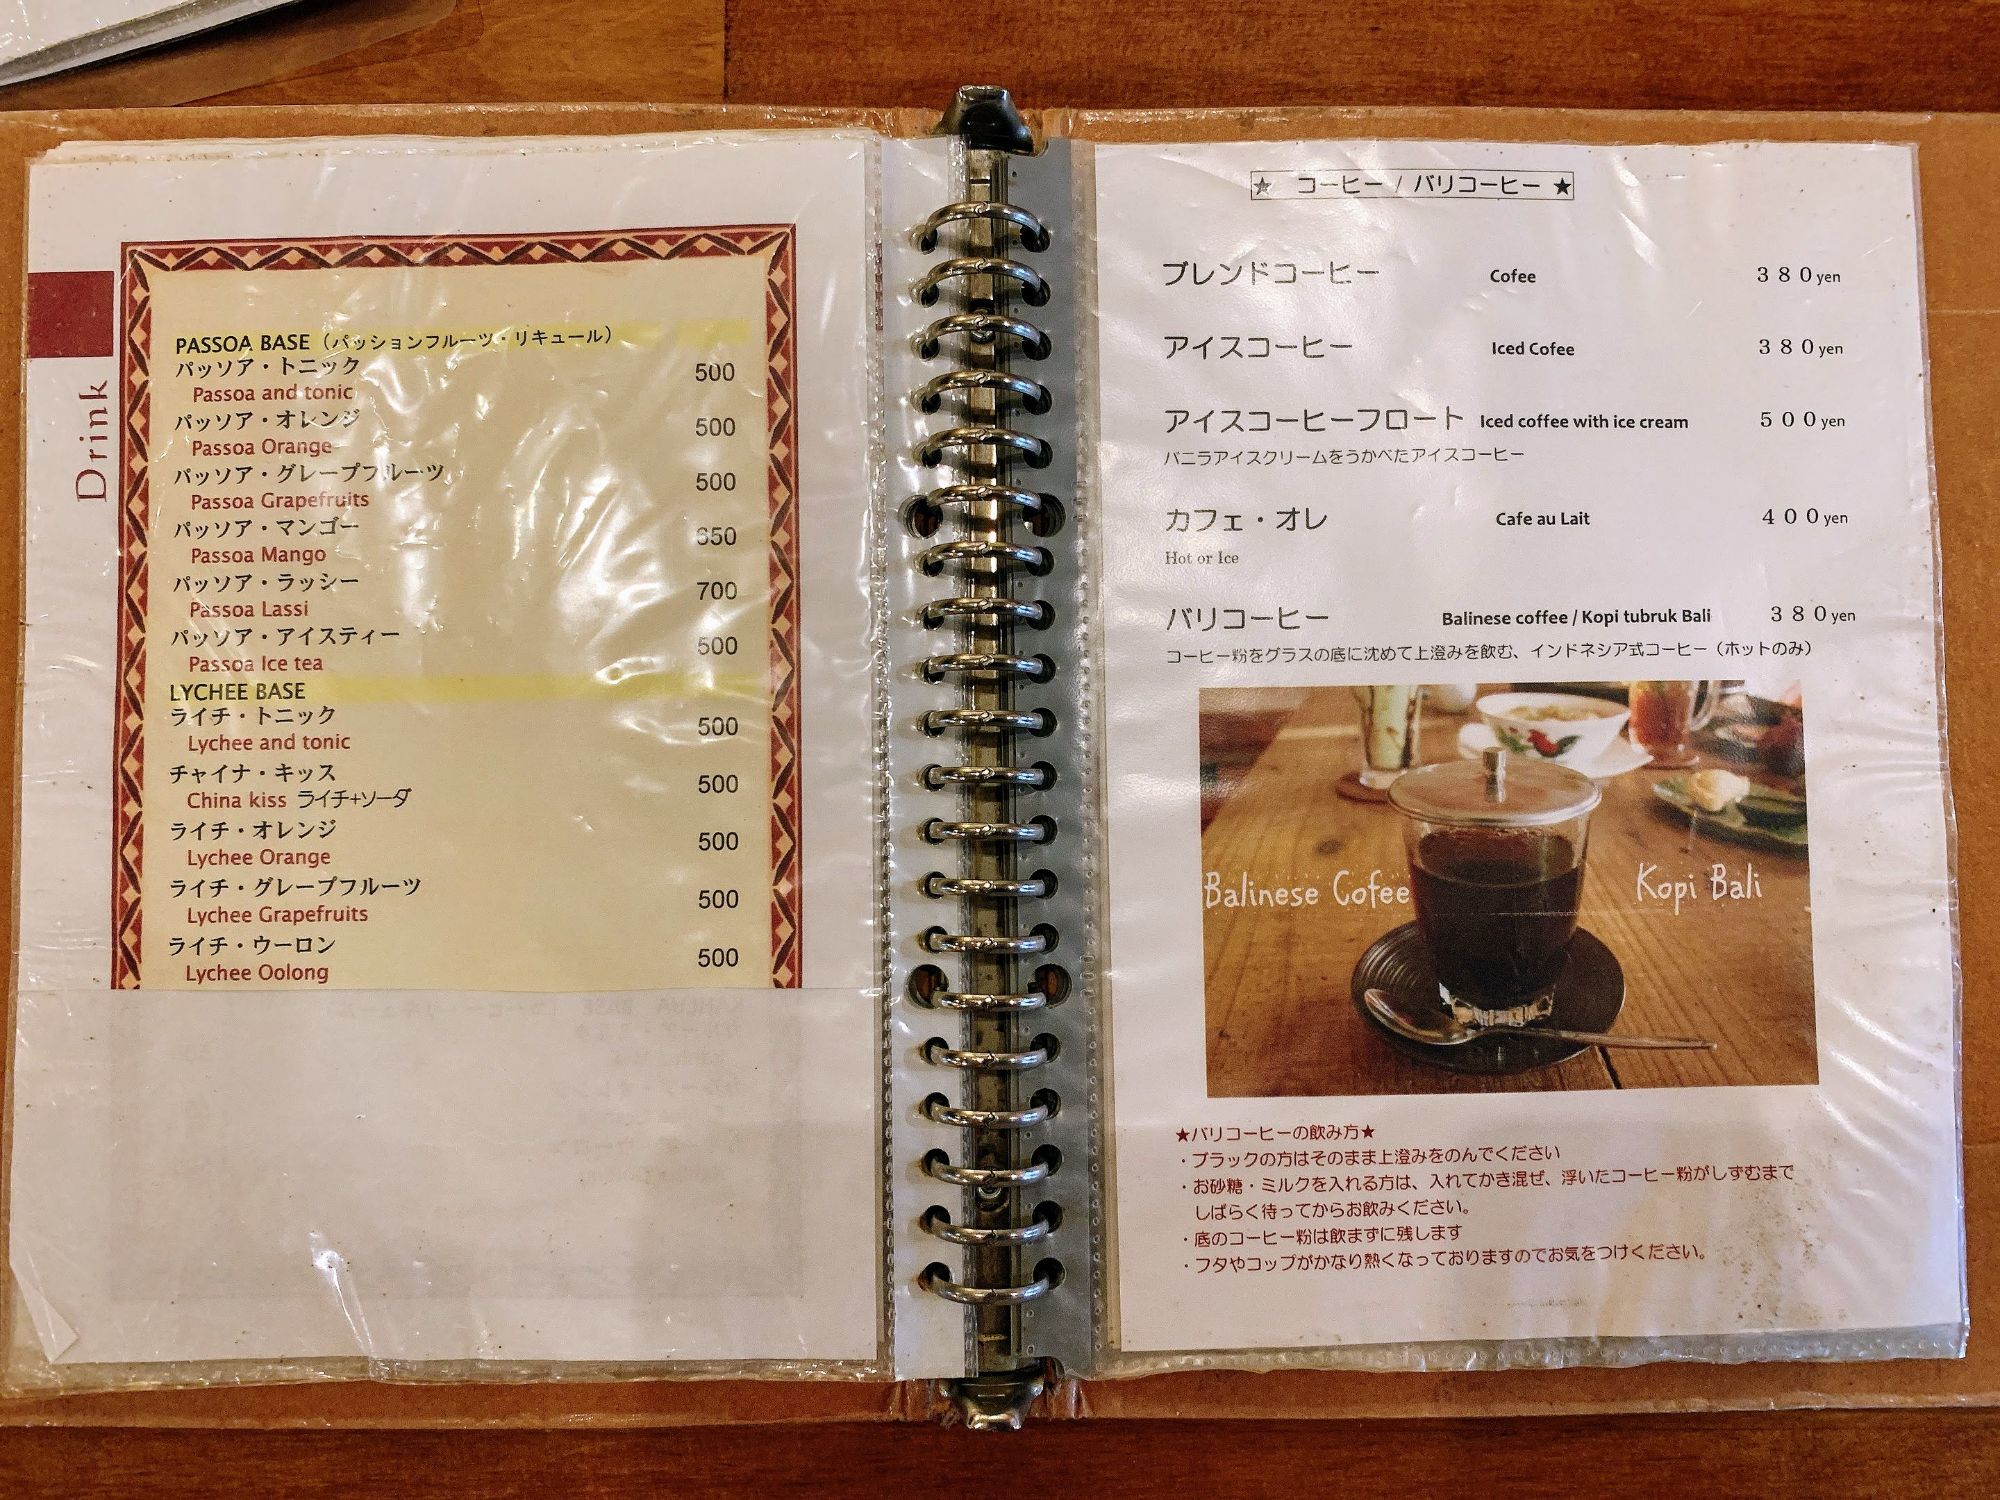 Drink
PASSOA BASE（パッションフルーツ・リキュール）
パッソア・トニック
Passoa and tonic 500
パッソア・オレンジ
Passoa Orange 500
パッソア・グレープフルーツ
Passoa Grapefruits 500
パッソア・マンゴー
Passoa Mango 650
パッソア・ラッシー
Passoa Lassi 700
パッソア・アイスティー
Passoa Ice tea 500
LYCHEE BASE
ライチ・トニック
Lychee and tonic 500
チャイナ・キッス
China kiss ライチ+ソーダ 500
ライチ・オレンジ
Lychee Orange 500
ライチ・グレープフルーツ
Lychee Grapefruits 500
ライチ・ウーロン
Lychee Oolong 500
★ コーヒー / バリコーヒー ★
ブレンドコーヒー Cofee ３８０yen
アイスコーヒー Iced Cofee ３８０yen
アイスコーヒーフロート Iced coffee with ice cream ５００yen
バニラアイスクリームをうかべたアイスコーヒー
カフェ・オレ Cafe au Lait ４００yen
Hot or Ice
バリコーヒー Balinese coffee / Kopi tubruk Bali ３８０yen
コーヒー粉をグラスの底に沈めて上澄みを飲む、インドネシア式コーヒー（ホットのみ）
Balinese Cofee Kopi Bali
★バリコーヒーの飲み方★
・ブラックの方はそのまま上澄みをのんでください
・お砂糖・ミルクを入れる方は、入れてかき混ぜ、浮いたコーヒー粉がしずむまで
しばらく待ってからお飲みください。
・底のコーヒー粉は飲まずに残します
・フタやコップがかなり熱くなっておりますのでお気をつけください。